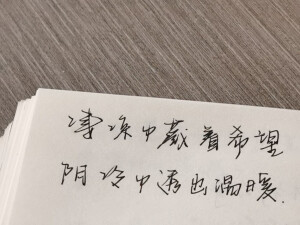 凄凉中藏着希望
阴冷中透出温暖.